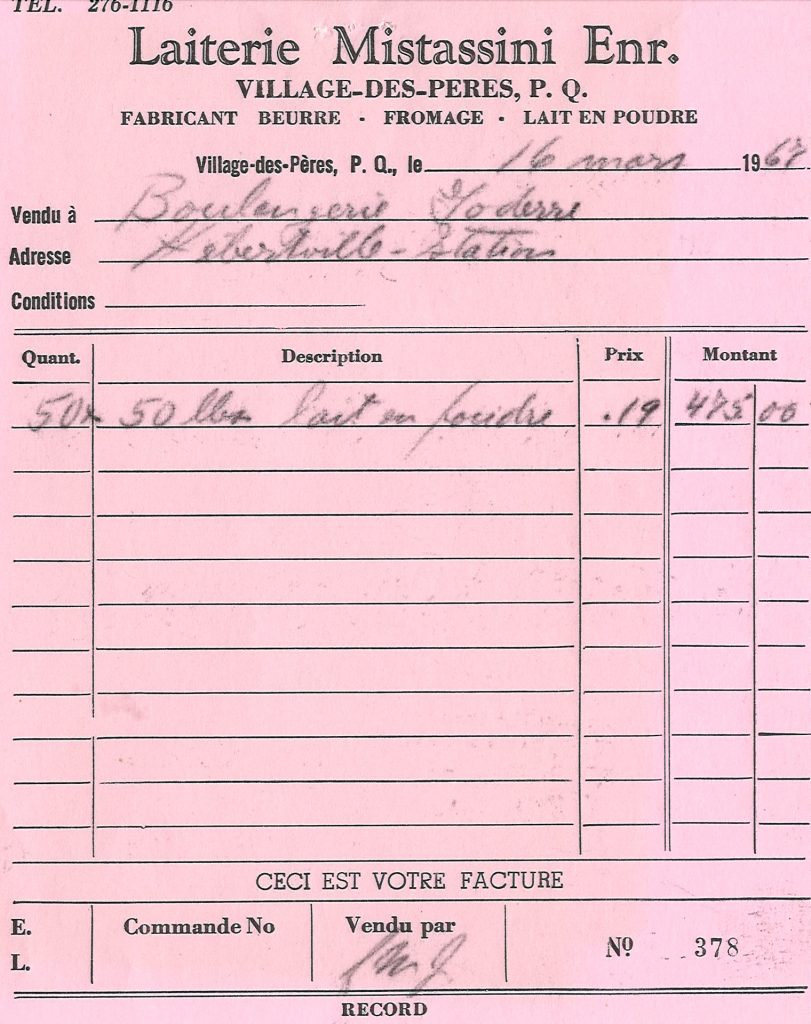 TEL. 276-1116
Laiterie Mistassini Enr.
VILLAGE-DES-PERES, P. Q.
FABRICANT BEURRE - FROMAGE - LAIT EN POUDRE
Village-des-Pères, P. Q., le 16 mars 19
Vendu à Boulangerie
Adresse Hebertville-Station
Conditions
Quant. Description Prix Montant
50x 50 lbs lait en poudre .19 475 00
CECI EST VOTRE FACTURE
E. Commande No Vendu par
L. Nº 378
RECORD